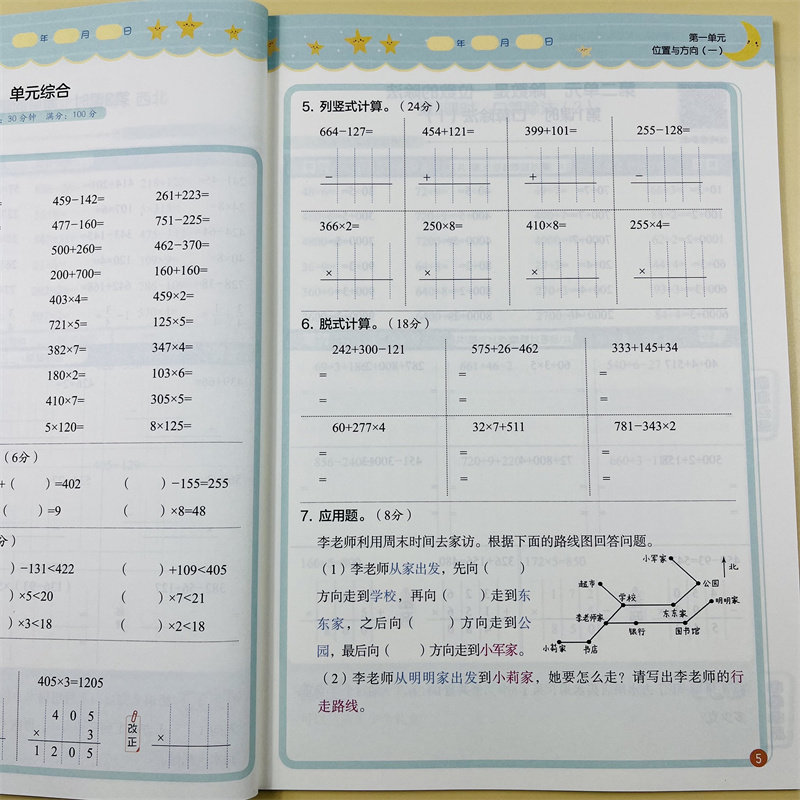 年 月 日
单元综合
30分钟 满分：100分
459−142= 261+223=
477−160= 751−225=
500+260= 462−370=
200+700= 160+160=
403×4= 459×2=
721×5= 125×5=
382×7= 347×4=
180×2= 103×6=
410×7= 305×5=
5×120= 8×125=
（6分）
+（ ）=402 （ ）−155=255
（ ）=9 （ ）×8=48
分）
）−131<422 （ ）+109<405
）×5<20 （ ）×7<21
）×3<18 （ ）×2<18
405×3=1205
4 0 5
× 3
1 2 0 5
改正
×
年 月 日
第一单元
位置与方向（一）
5. 列竖式计算。（24分）
664−127= 454+121= 399+101= 255−128=
− + + −
366×2= 250×8= 410×8= 255×4=
× × × ×
6. 脱式计算。（18分）
242+300−121 575+26−462 333+145+34
= = =
= = =
60+277×4 32×7+511 781−343×2
= = =
= = =
7. 应用题。（8分）
李老师利用周末时间去家访。根据下面的路线图回答问题。
（1）李老师从家出发，先向（ ）
方向走到学校，再向（ ）走到东
东家，之后向（ ）方向走到公
园，最后向（ ）方向走到小军家。
小军家
北
超市
公园
学校
东东家
明明家
李老师家
银行
图书馆
小莉家
书店
（2）李老师从明明家出发到小莉家，她要怎么走？请写出李老师的行
走路线。
5